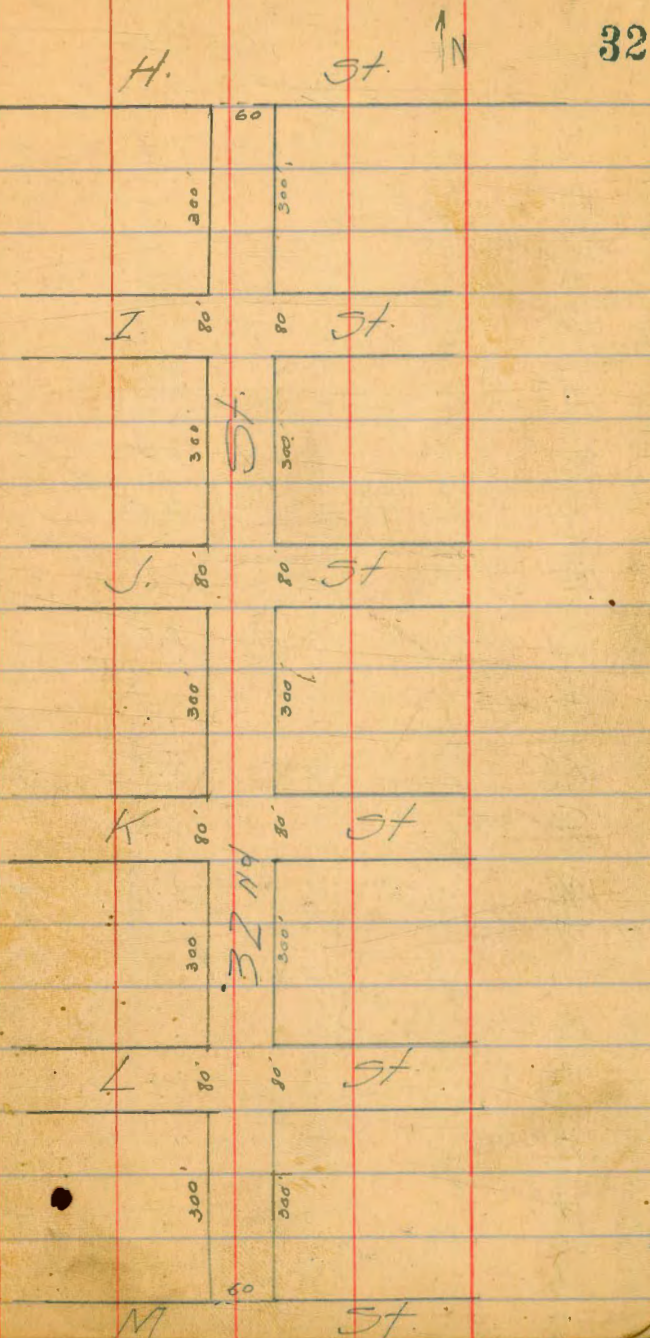 32
N
H. St.
60
200' 300'
I. 80' 80 St.
300 St. 300
J. 80' 80' St
300' 300'
K 80' 80' St
32 nd
300' 300'
L 80' 80' St
300' 300'
60
M St.